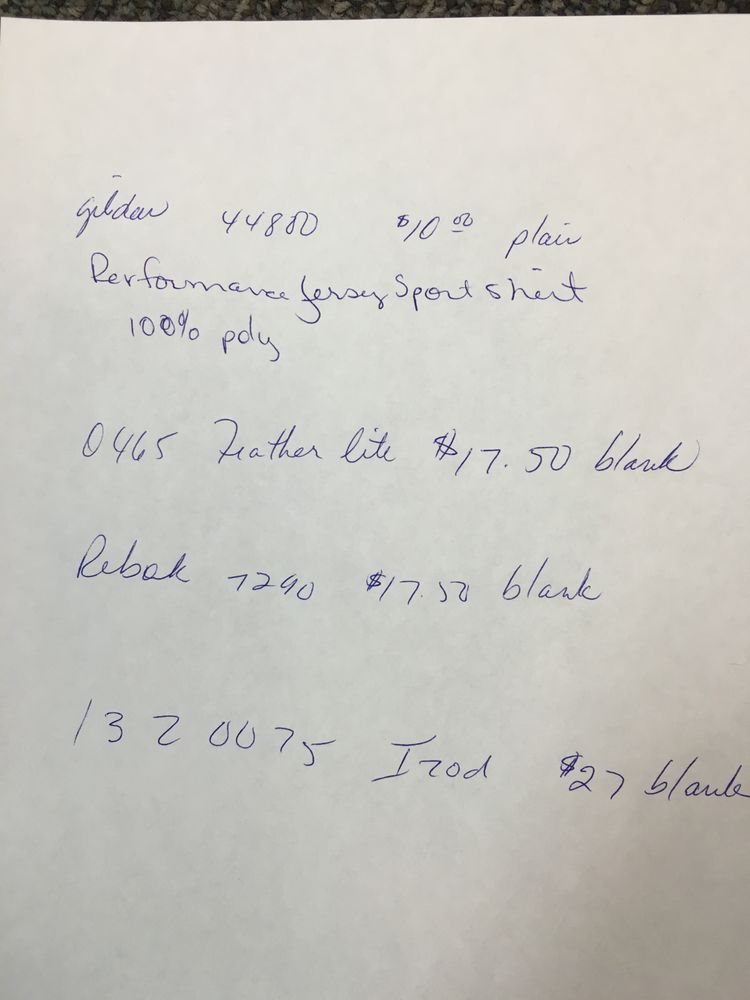 gildan 44800 $10.00 plain
Performance Jersey Sport shirt
100% poly
0465 Feather lite $17.50 blank
Rebok 7290 $17.50 blank
13Z0075 Izod $27 blank